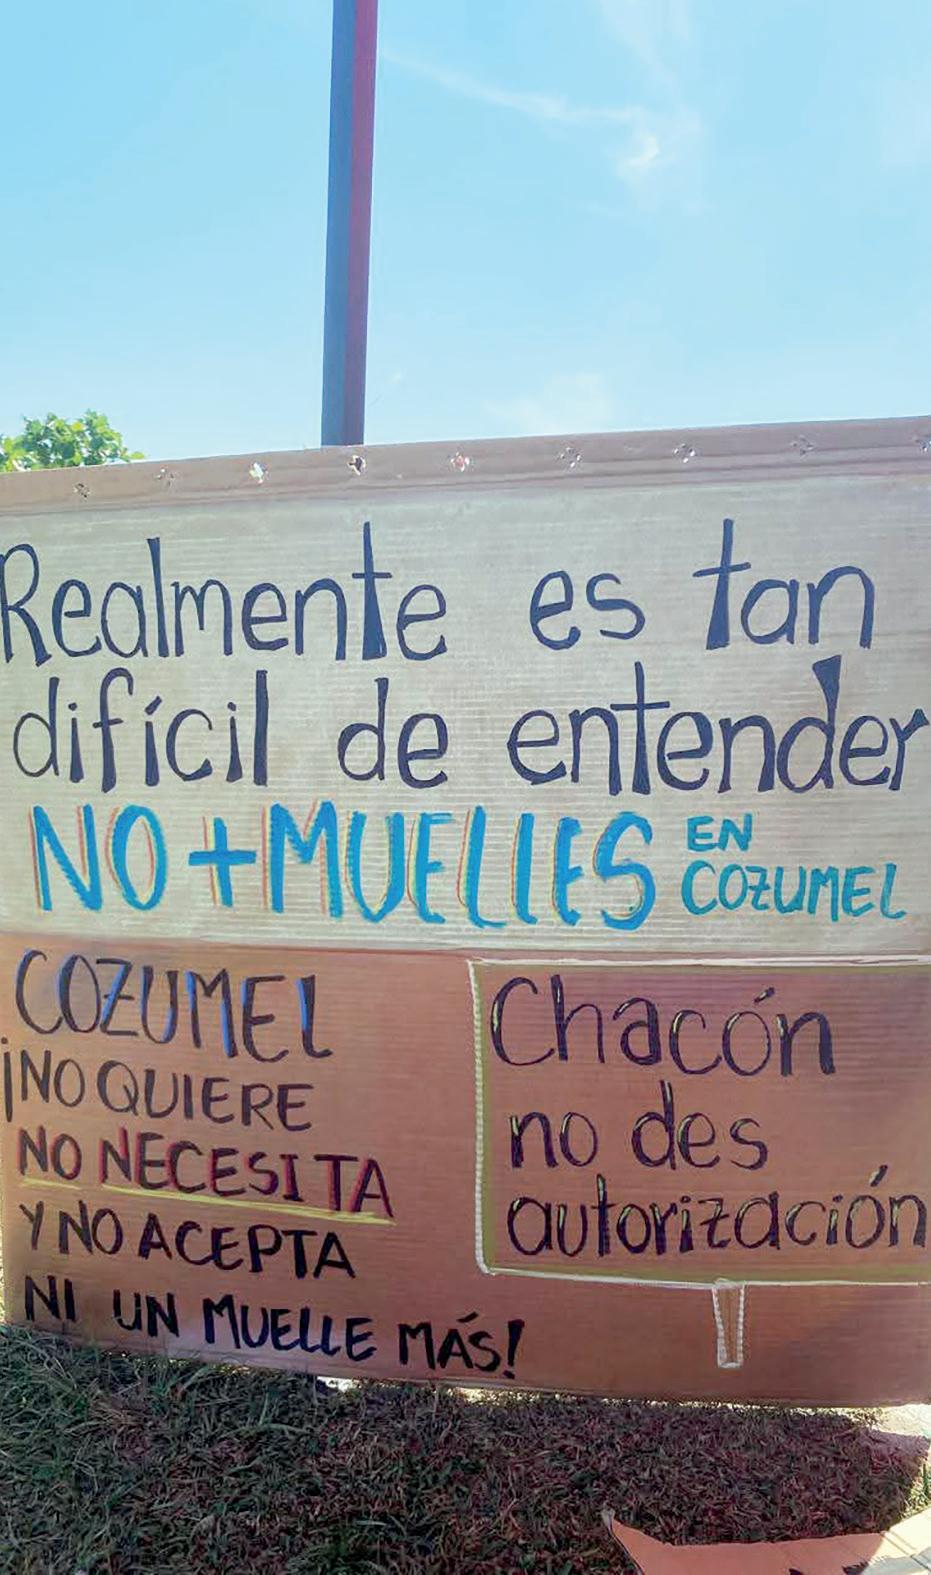 Realmente es tan
difícil de entender
NO + MUELLES EN
COZUMEL
COZUMEL
¡NO QUIERE
NO NECESITA
Y NO ACEPTA
NI UN MUELLE MÁS!
Chacón
no des
autorización